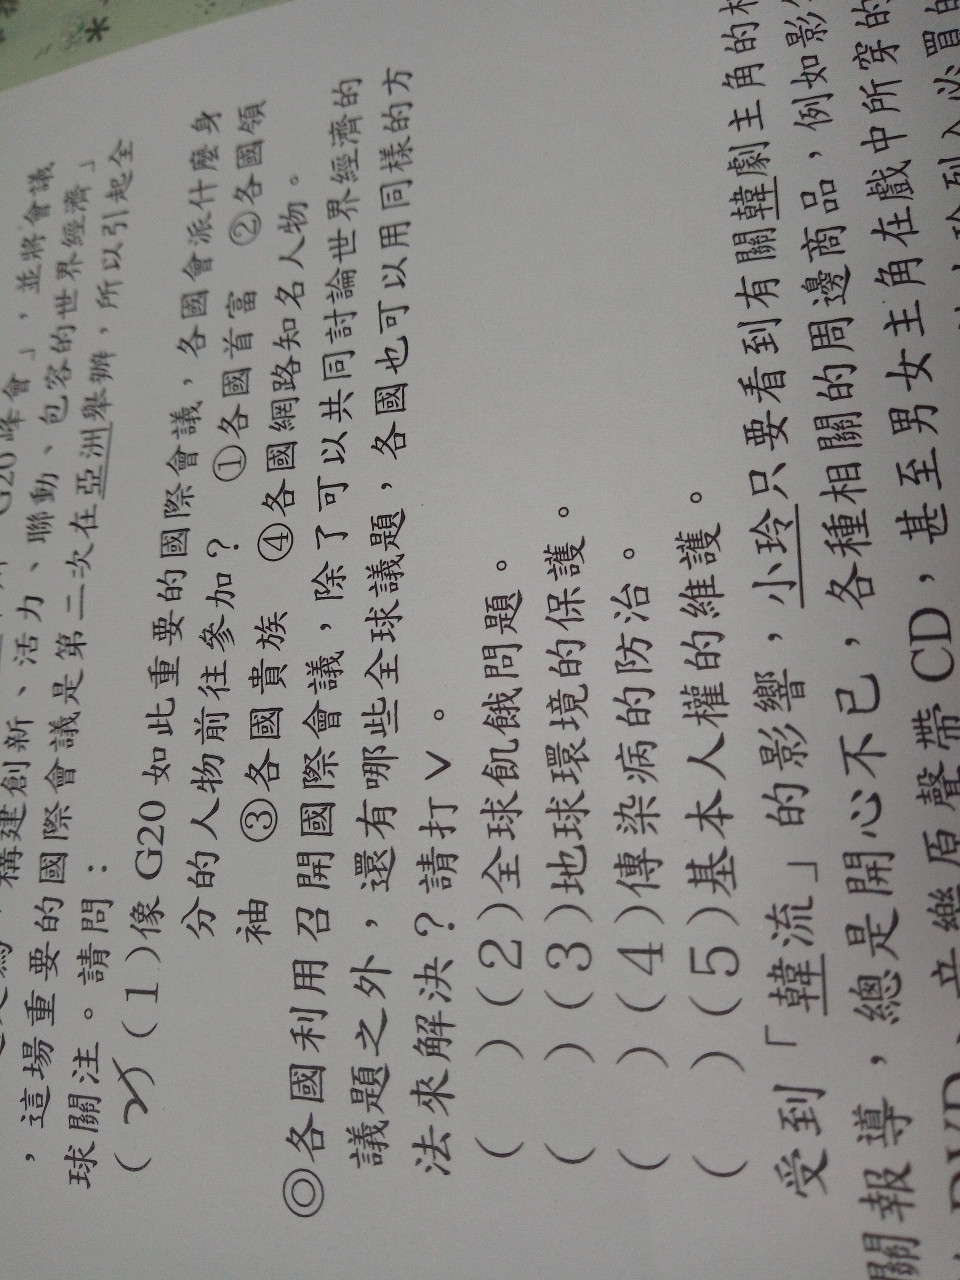 G20 峰會」,並將會議
構建創新、活力、聯動、包容的世界經濟」
,這場重要的國際會議是第二次在亞洲舉辦,所以引起全
球關注。請問:
(2)(1)像 G20 如此重要的國際會議,各國會派什麼身
分的人物前往參加? ①各國首富 ②各國領
袖 ③各國貴族 ④各國網路知名人物。
◎各國利用召開國際會議,除了可以共同討論世界經濟的
議題之外,還有哪些全球議題,各國也可以用同樣的方
法來解決?請打ˇ。
( )(2)全球飢餓問題。
( )(3)地球環境的保護。
( )(4)傳染病的防治。
( )(5)基本人權的維護。
受到「韓流」的影響,小玲只要看到有關韓劇主角的相
關報導,總是開心不已,各種相關的周邊商品,例如影
DVD、音樂原聲帶 CD,甚至男女主角在戲中所穿的
列入必買的